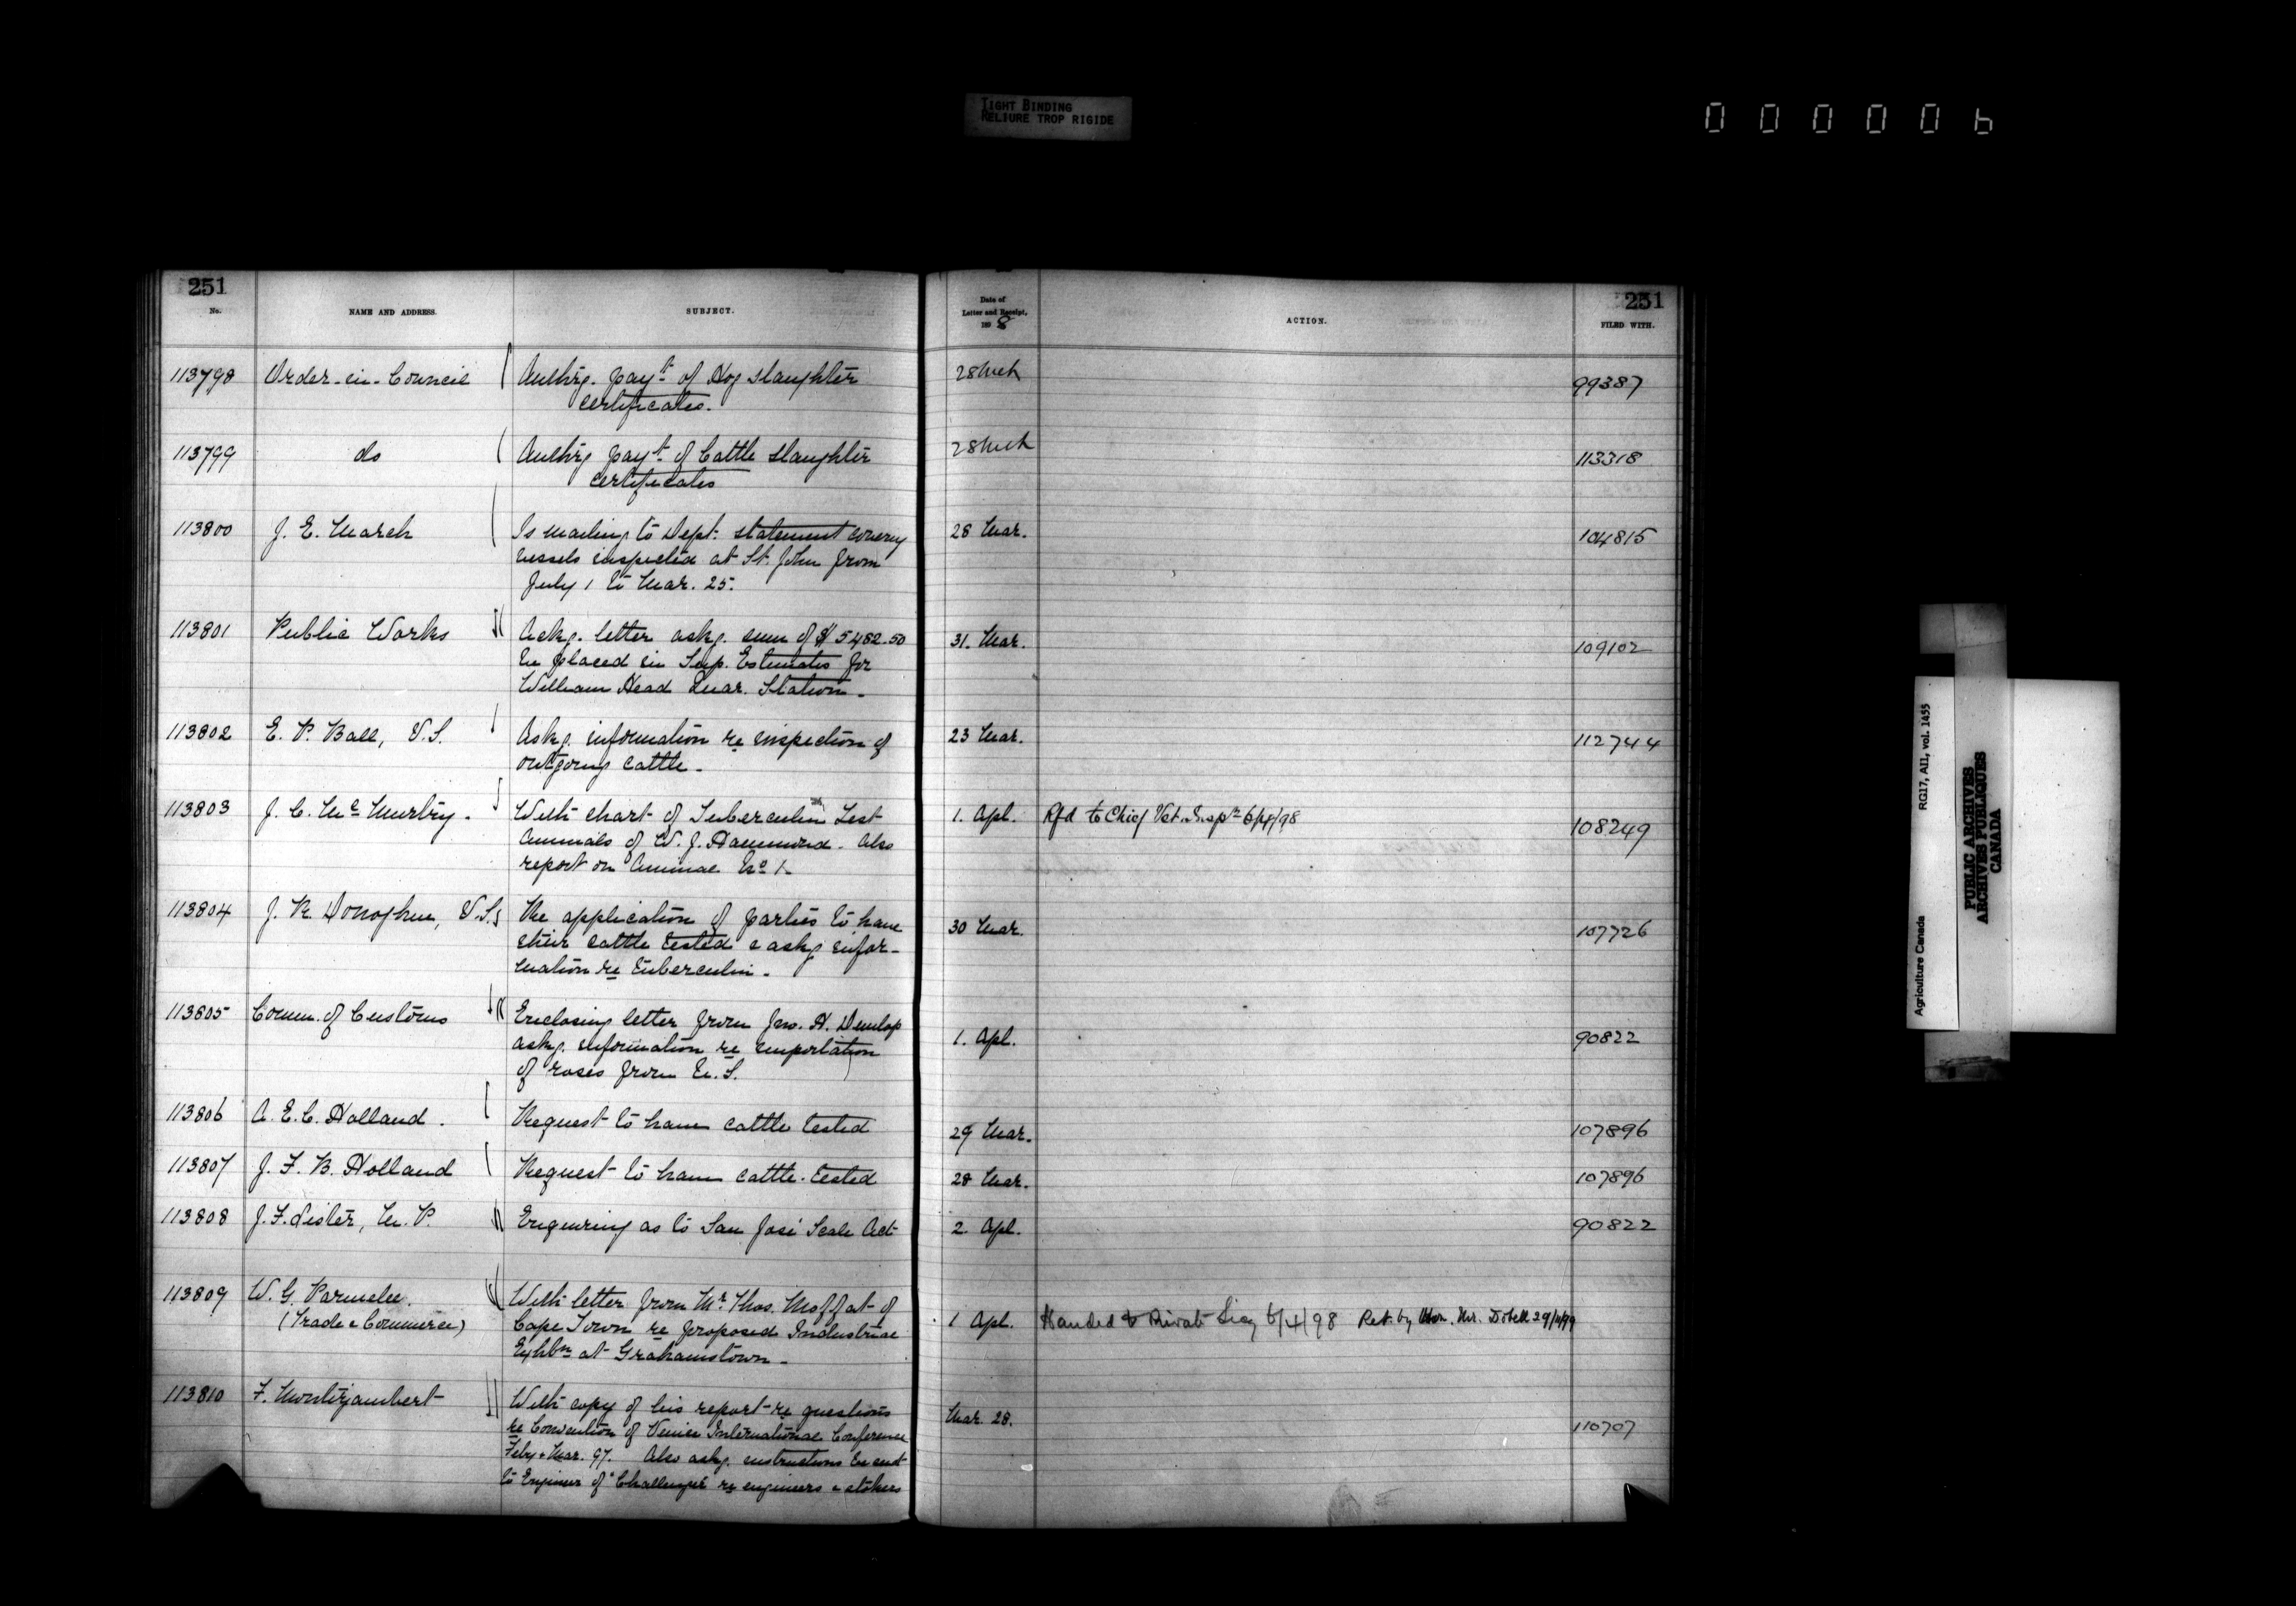 TIGHT BINDING
RELIURE TROP RIGIDE
000006
251
251
No.
NAME AND ADDRESS.
SUBJECT.
Date of
Letter and Receipt,
189 8
ACTION.
FILED WITH.
113798 Order-in-Council Authrg. payt. of Hog slaughter 28 Mch 99387
certificates.
113799 do Authrg payt. of Cattle slaughter 28 Mch 113318
certificates
113800 J. E. March Is mailing to Dept. statement coverg 28 Mar. 104815
vessels inspected at St. John from
July 1 to Mar. 25.
113801 Public Works Ackg. letter askg. sum of $5482.50 31. Mar. 109102
be placed in Sup. Estimates for
William Head Quar. Station.
113802 E. P. Ball, V.S. Askg. information re inspection of 23 Mar. 112744
outgoing cattle.
113803 J. C. Mc Murtry. With chart of Tuberculin Test 1. Apl. Rfd to Chief Vet. Inspr 6/4/98 108249
Animals of W. J. Hammond. Also
report on Animal No 1.
113804 J. R. Donoghue, V.S. Re application of parties to have 30 Mar. 107726
their cattle tested & askg infor-
mation re tuberculin.
113805 Comm. of Customs Enclosing letter from Jno. H. Dunlop 1. Apl. 90822
askg. information re importation
of roses from U.S.
113806 A. E. C. Holland. Request to have cattle tested 29 Mar. 107896
113807 J. F. B. Holland Request to have cattle tested 28 Mar. 107896
113808 J. F. Lister, M.P. Enquiring as to San José Scale Act 2. Apl. 90822
113809 W. G. Parmelee. With letter from Mr. Thos. Moffat of
(Trade & Commerce) Cape Town re proposed Industrial 1 Apl. Handed to Private Secy 6/4/98 Ret. by Hon. Mr. Dobell
Exhbn at Grahamstown.
113810 F. Montizambert With copy of his report re questions Mar. 28. 110707
re Convention of Venice International Conference
Feby & Mar. 97. Also askg. instructions be sent
to Engineer of "Challenger" re engineers & stokers
Agriculture Canada RG17, AII, vol. 1455
PUBLIC ARCHIVES
ARCHIVES PUBLIQUES
CANADA